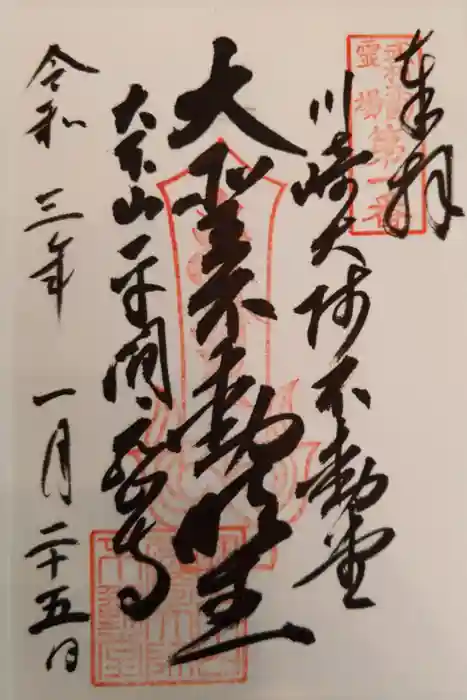 奉拝
川崎大師不動堂
大聖不動明王
大本山平間寺
令和三年一月二十五日
霊場第一番